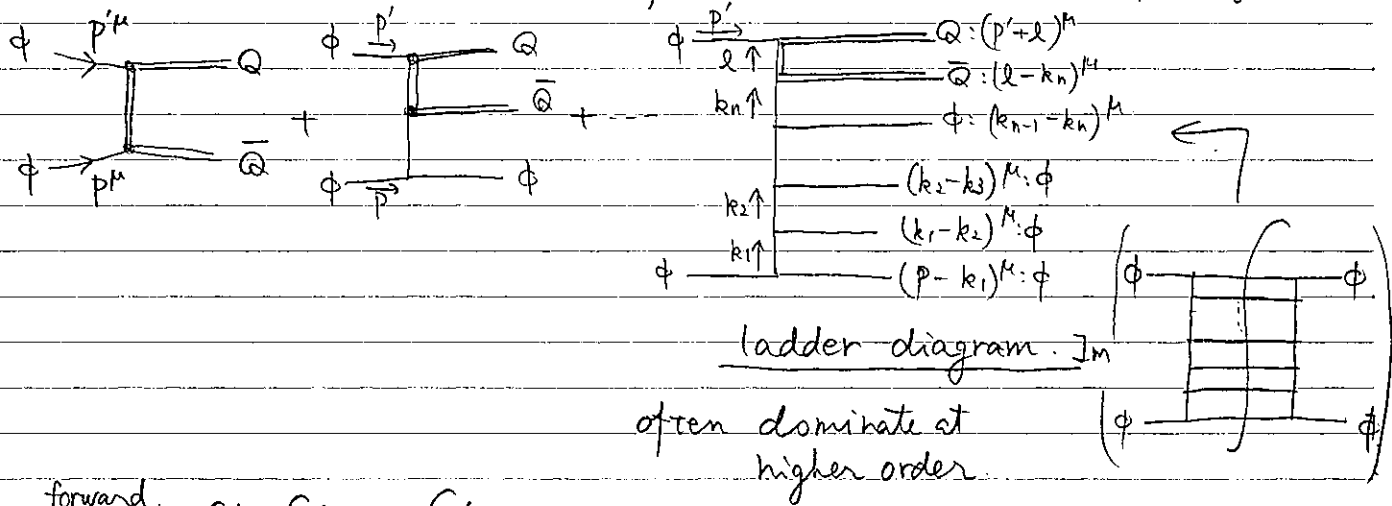 ϕ p'^μ Q
ϕ p^μ Q̄
+
ϕ p' Q
Q̄
ϕ p ϕ
+ ----
ϕ p' Q:(p'+l)^μ
l↑ Q̄:(l-kn)^μ
kn↑ ϕ:(k_{n-1}-kn)^μ
k2↑ (k2-k3)^μ:ϕ
k1↑ (k1-k2)^μ:ϕ
ϕ (p-k1)^μ:ϕ
ladder diagram. Im
ϕ ϕ
ϕ ϕ
often dominate at
higher order.
forward